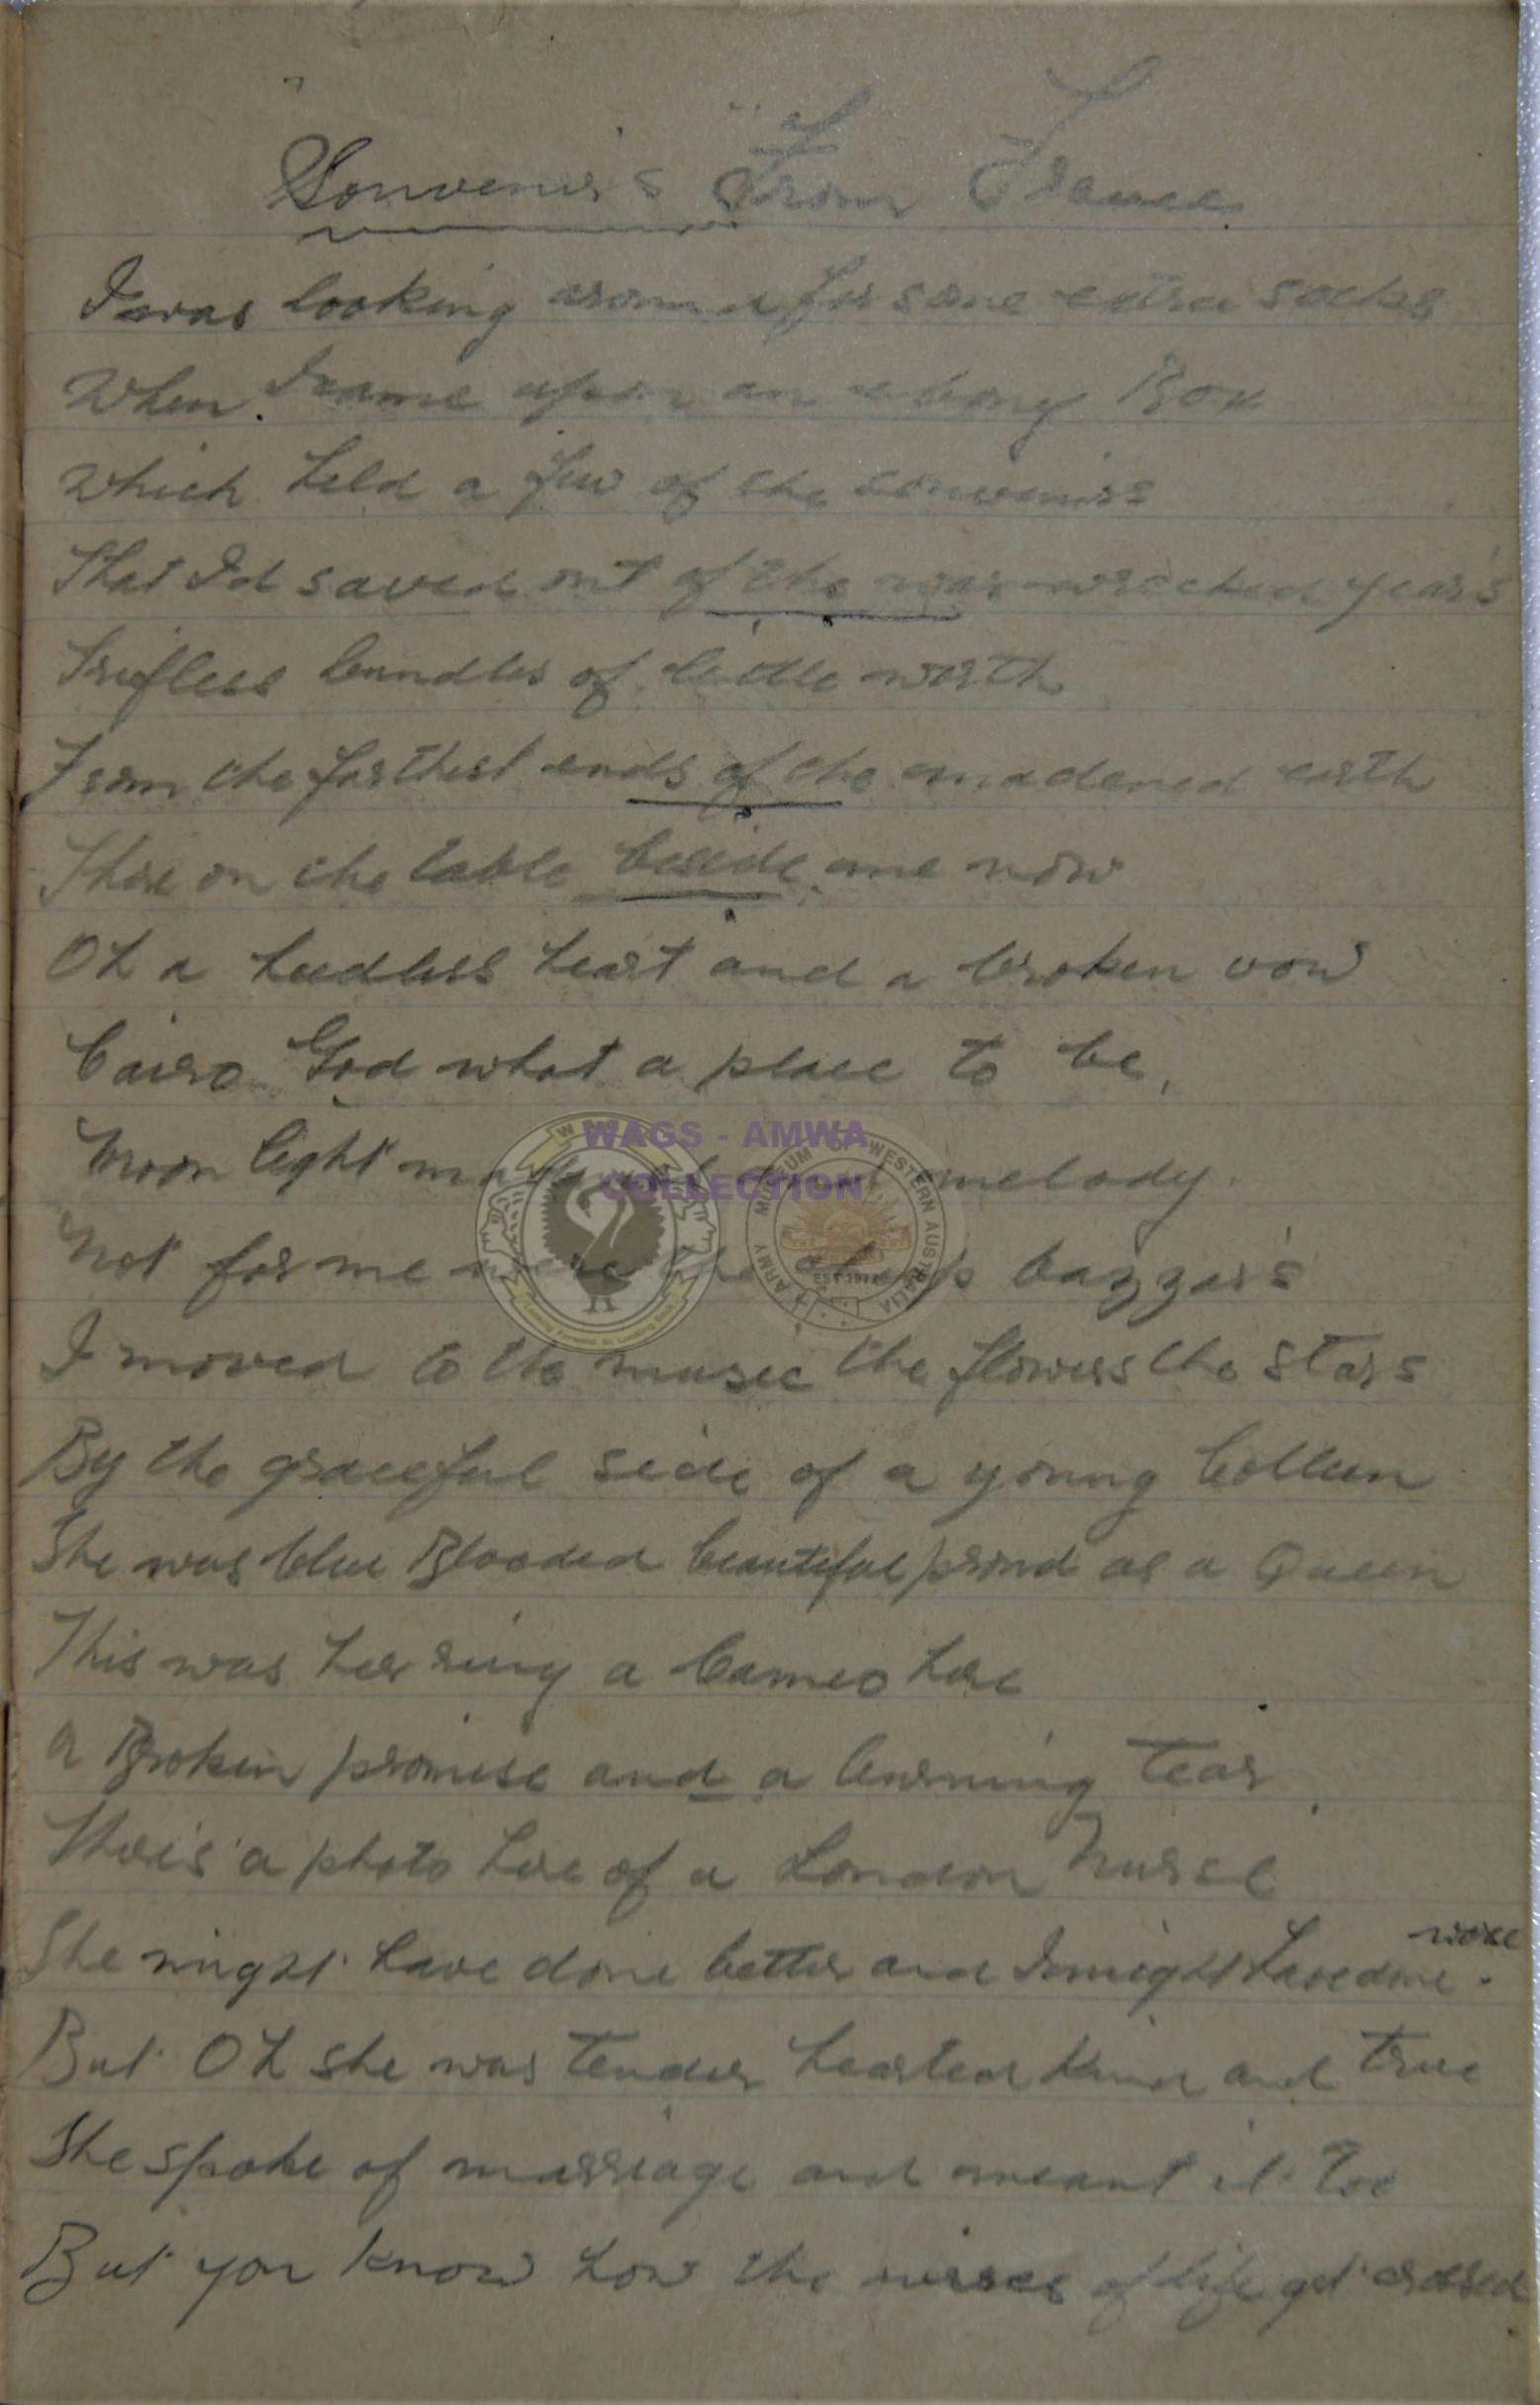 "Souvenir's" From France
I was looking around for some extra socks
When I came upon an ebony Box
which held a few of the souvenirs
That I'd saved out of the war-wrecked year's
Trifless bundles of little worth
From the farthest ends of the madened earth
There on the table beside me now
Oh a heedless heart and a broken vow
Cairo God what a place to be,
Moon light melody.
Not for me were the bazzar's
I moved to the music the flowers the stars
By the graceful side of a young Colleen
She was blue Blooded beautiful proud as a Queen
This was her ring a Cameo here
A Broken promise and a burning tear
There's a photo here of a London Nurse
She might have done better and I might have done worse.
But Oh she was tender hearted kind and true
She spoke of marriage and meant it too
But you know how the of life get crossed
WAGS - AMWA
COLLECTION
ARMY MUSEUM OF WESTERN AUSTRALIA